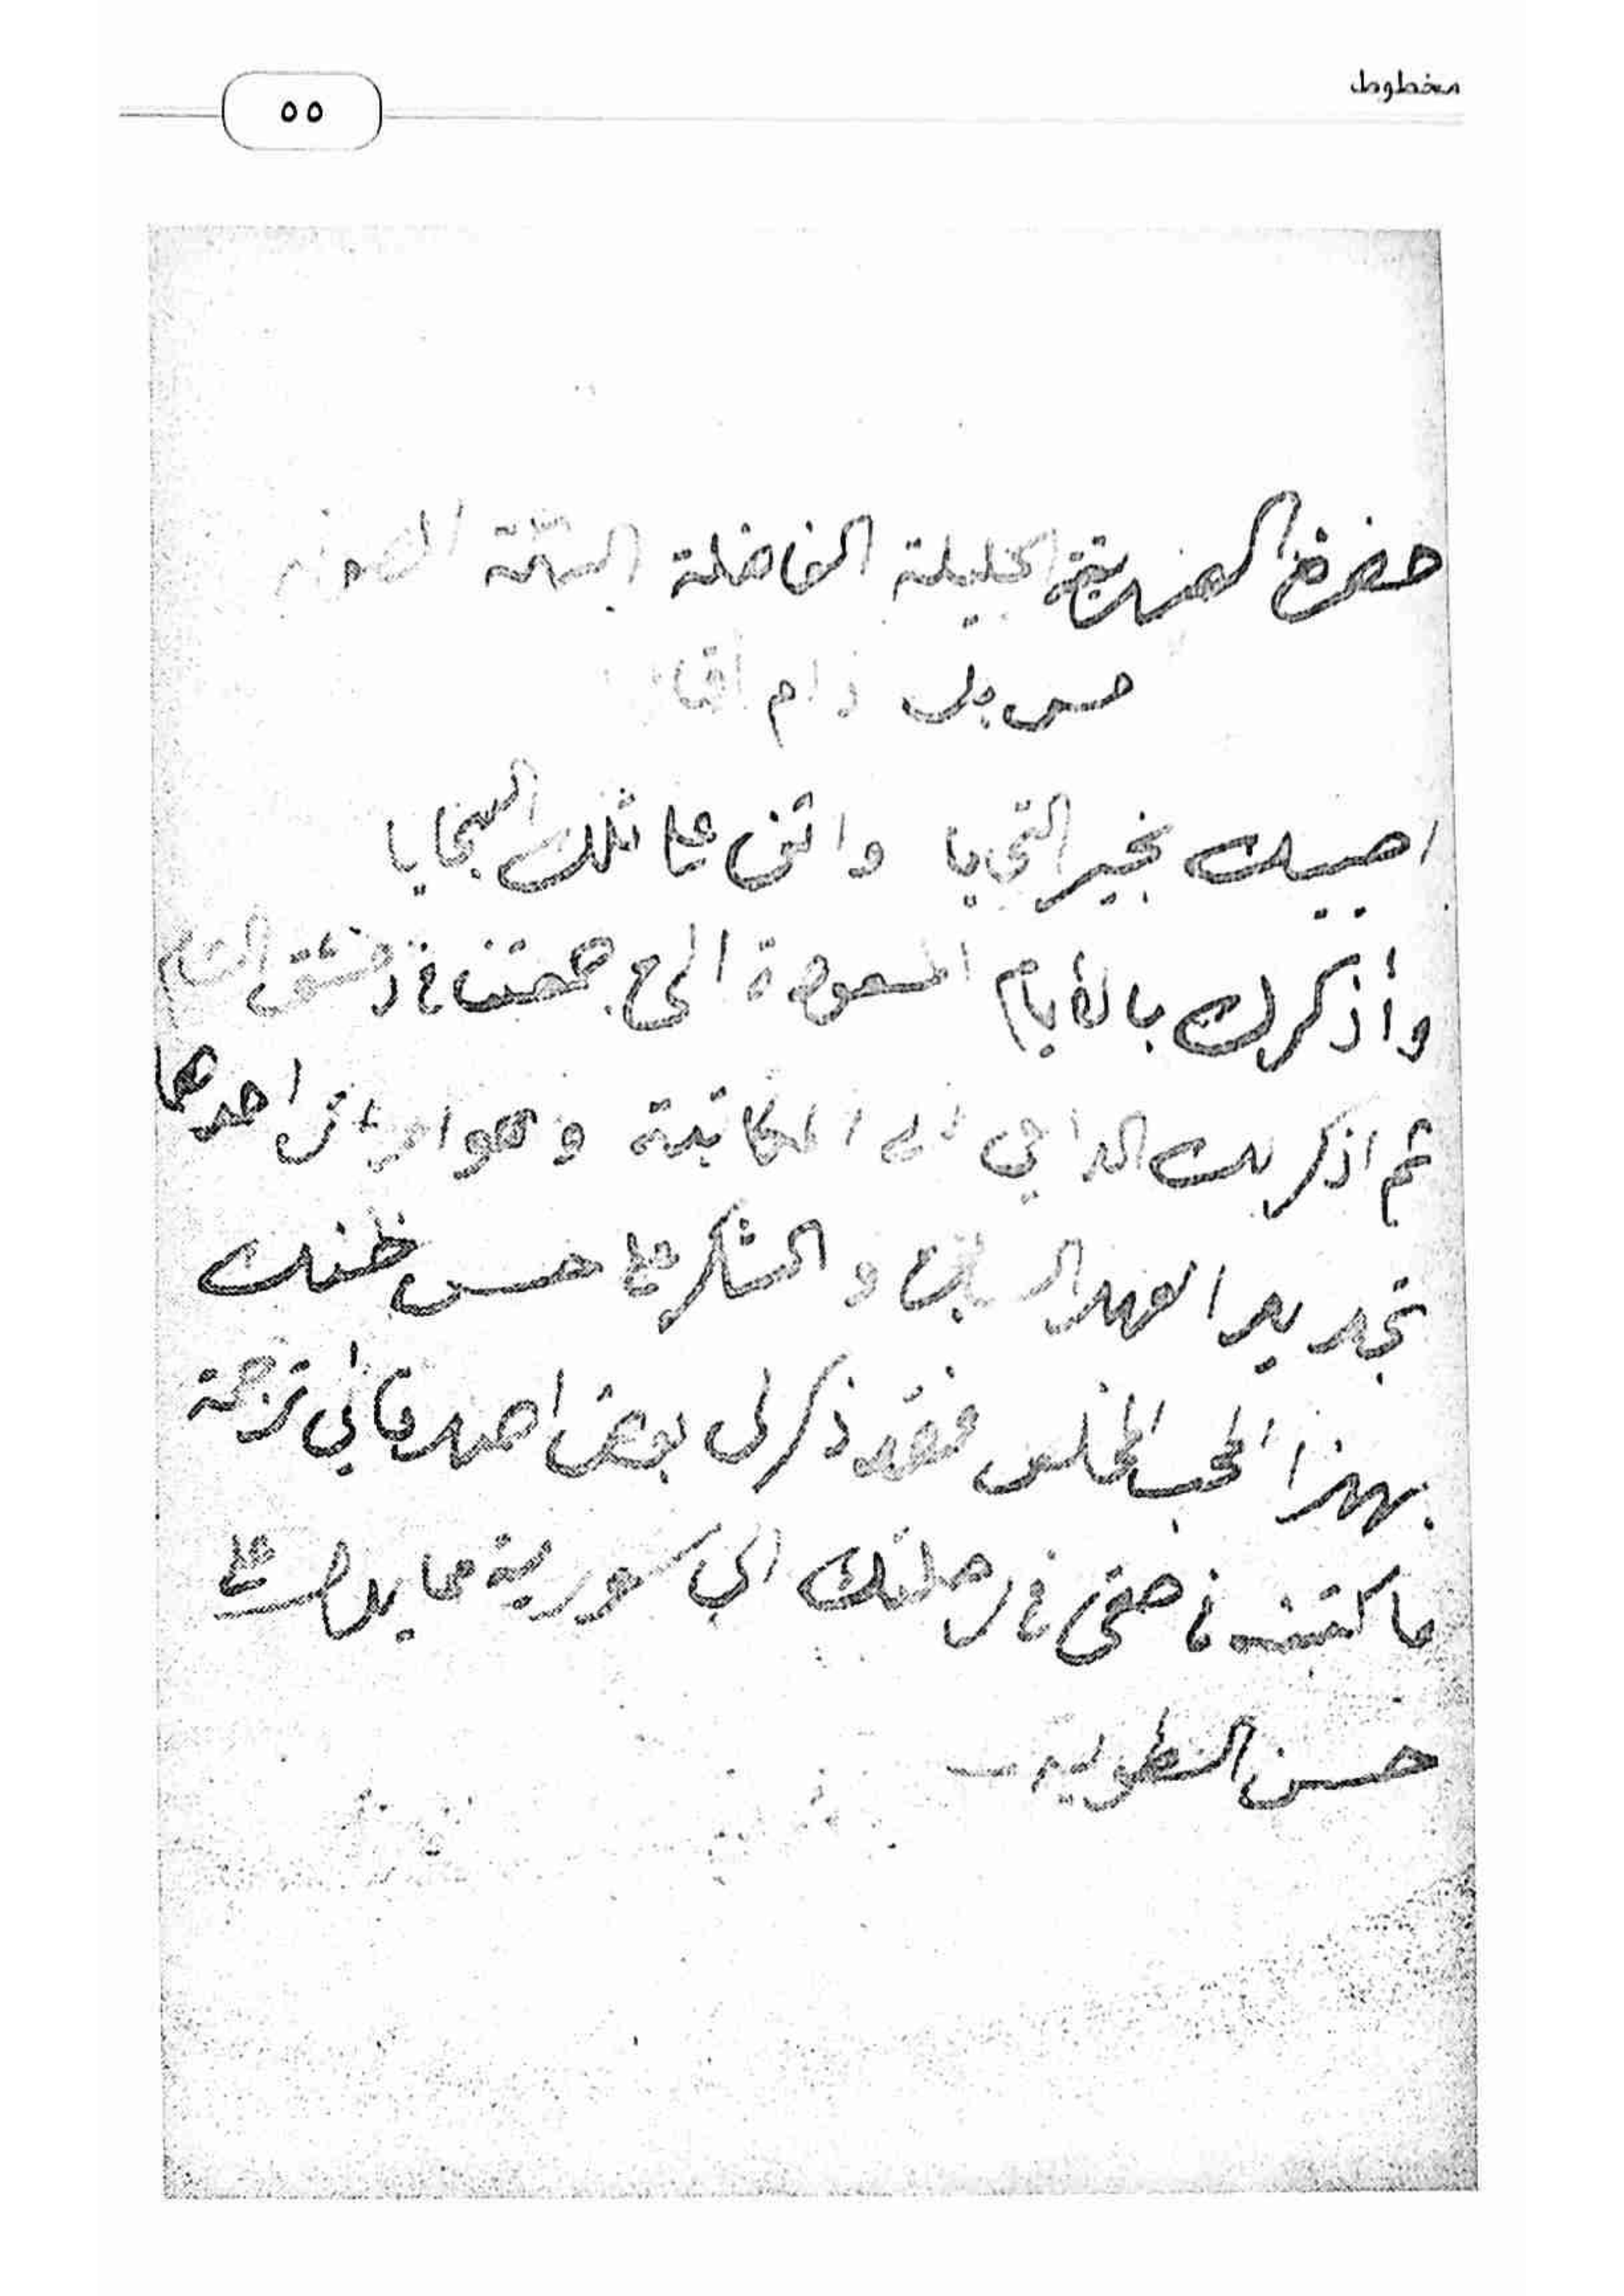 مخطوط
٥٥
حضرة الصديقة الجليلة الفاضلة
مس بل دام
احييك بخير التحايا واثني على تلك السجايا
وأذكرك بالأيام المسعودة التي جمعتنا في دمشق الشام
ثم اذكر لك الداعي الى المكاتبة وهو امران احدهما
تجديد العهد السابق والشكر على حسن ظنك
بهذا المحب المخلص فقد ذكر لي بعض اصدقائي ترجمة
ما كتبته في حقي في رحلتك الى سورية مما يدل على
حسن الطوية